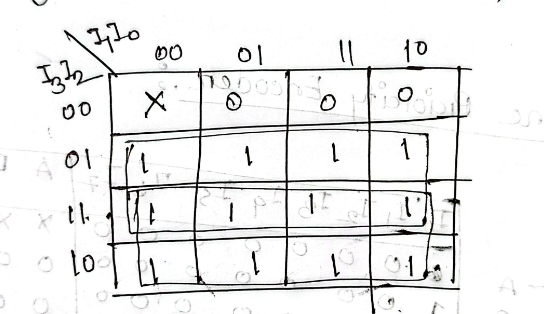 I₁I₀
00 01 11 10
I₃I₂
00 X 0 0 0
01 1 1 1 1
11 1 1 1 1
10 1 1 1 1